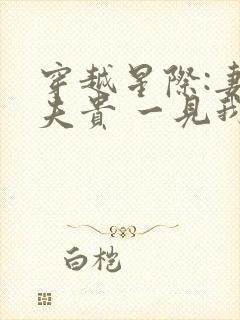 穿越星際:妻
夫貴 一見我
白桤